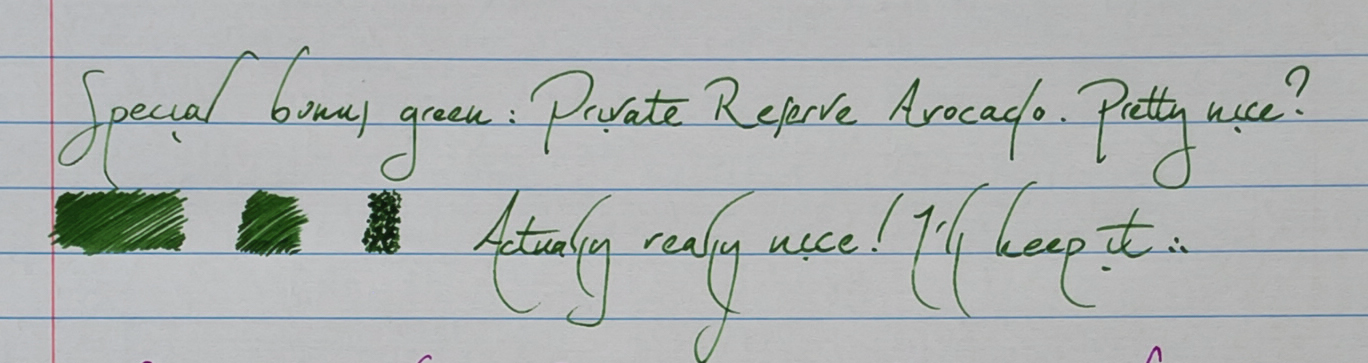 Special bonus green: Private Reserve Avocado. Pretty nice?
Actually really nice! I'll keep it :.